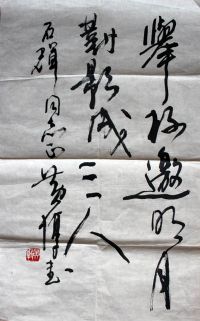 舉杯邀明月
對影成三人
石同志正黄書